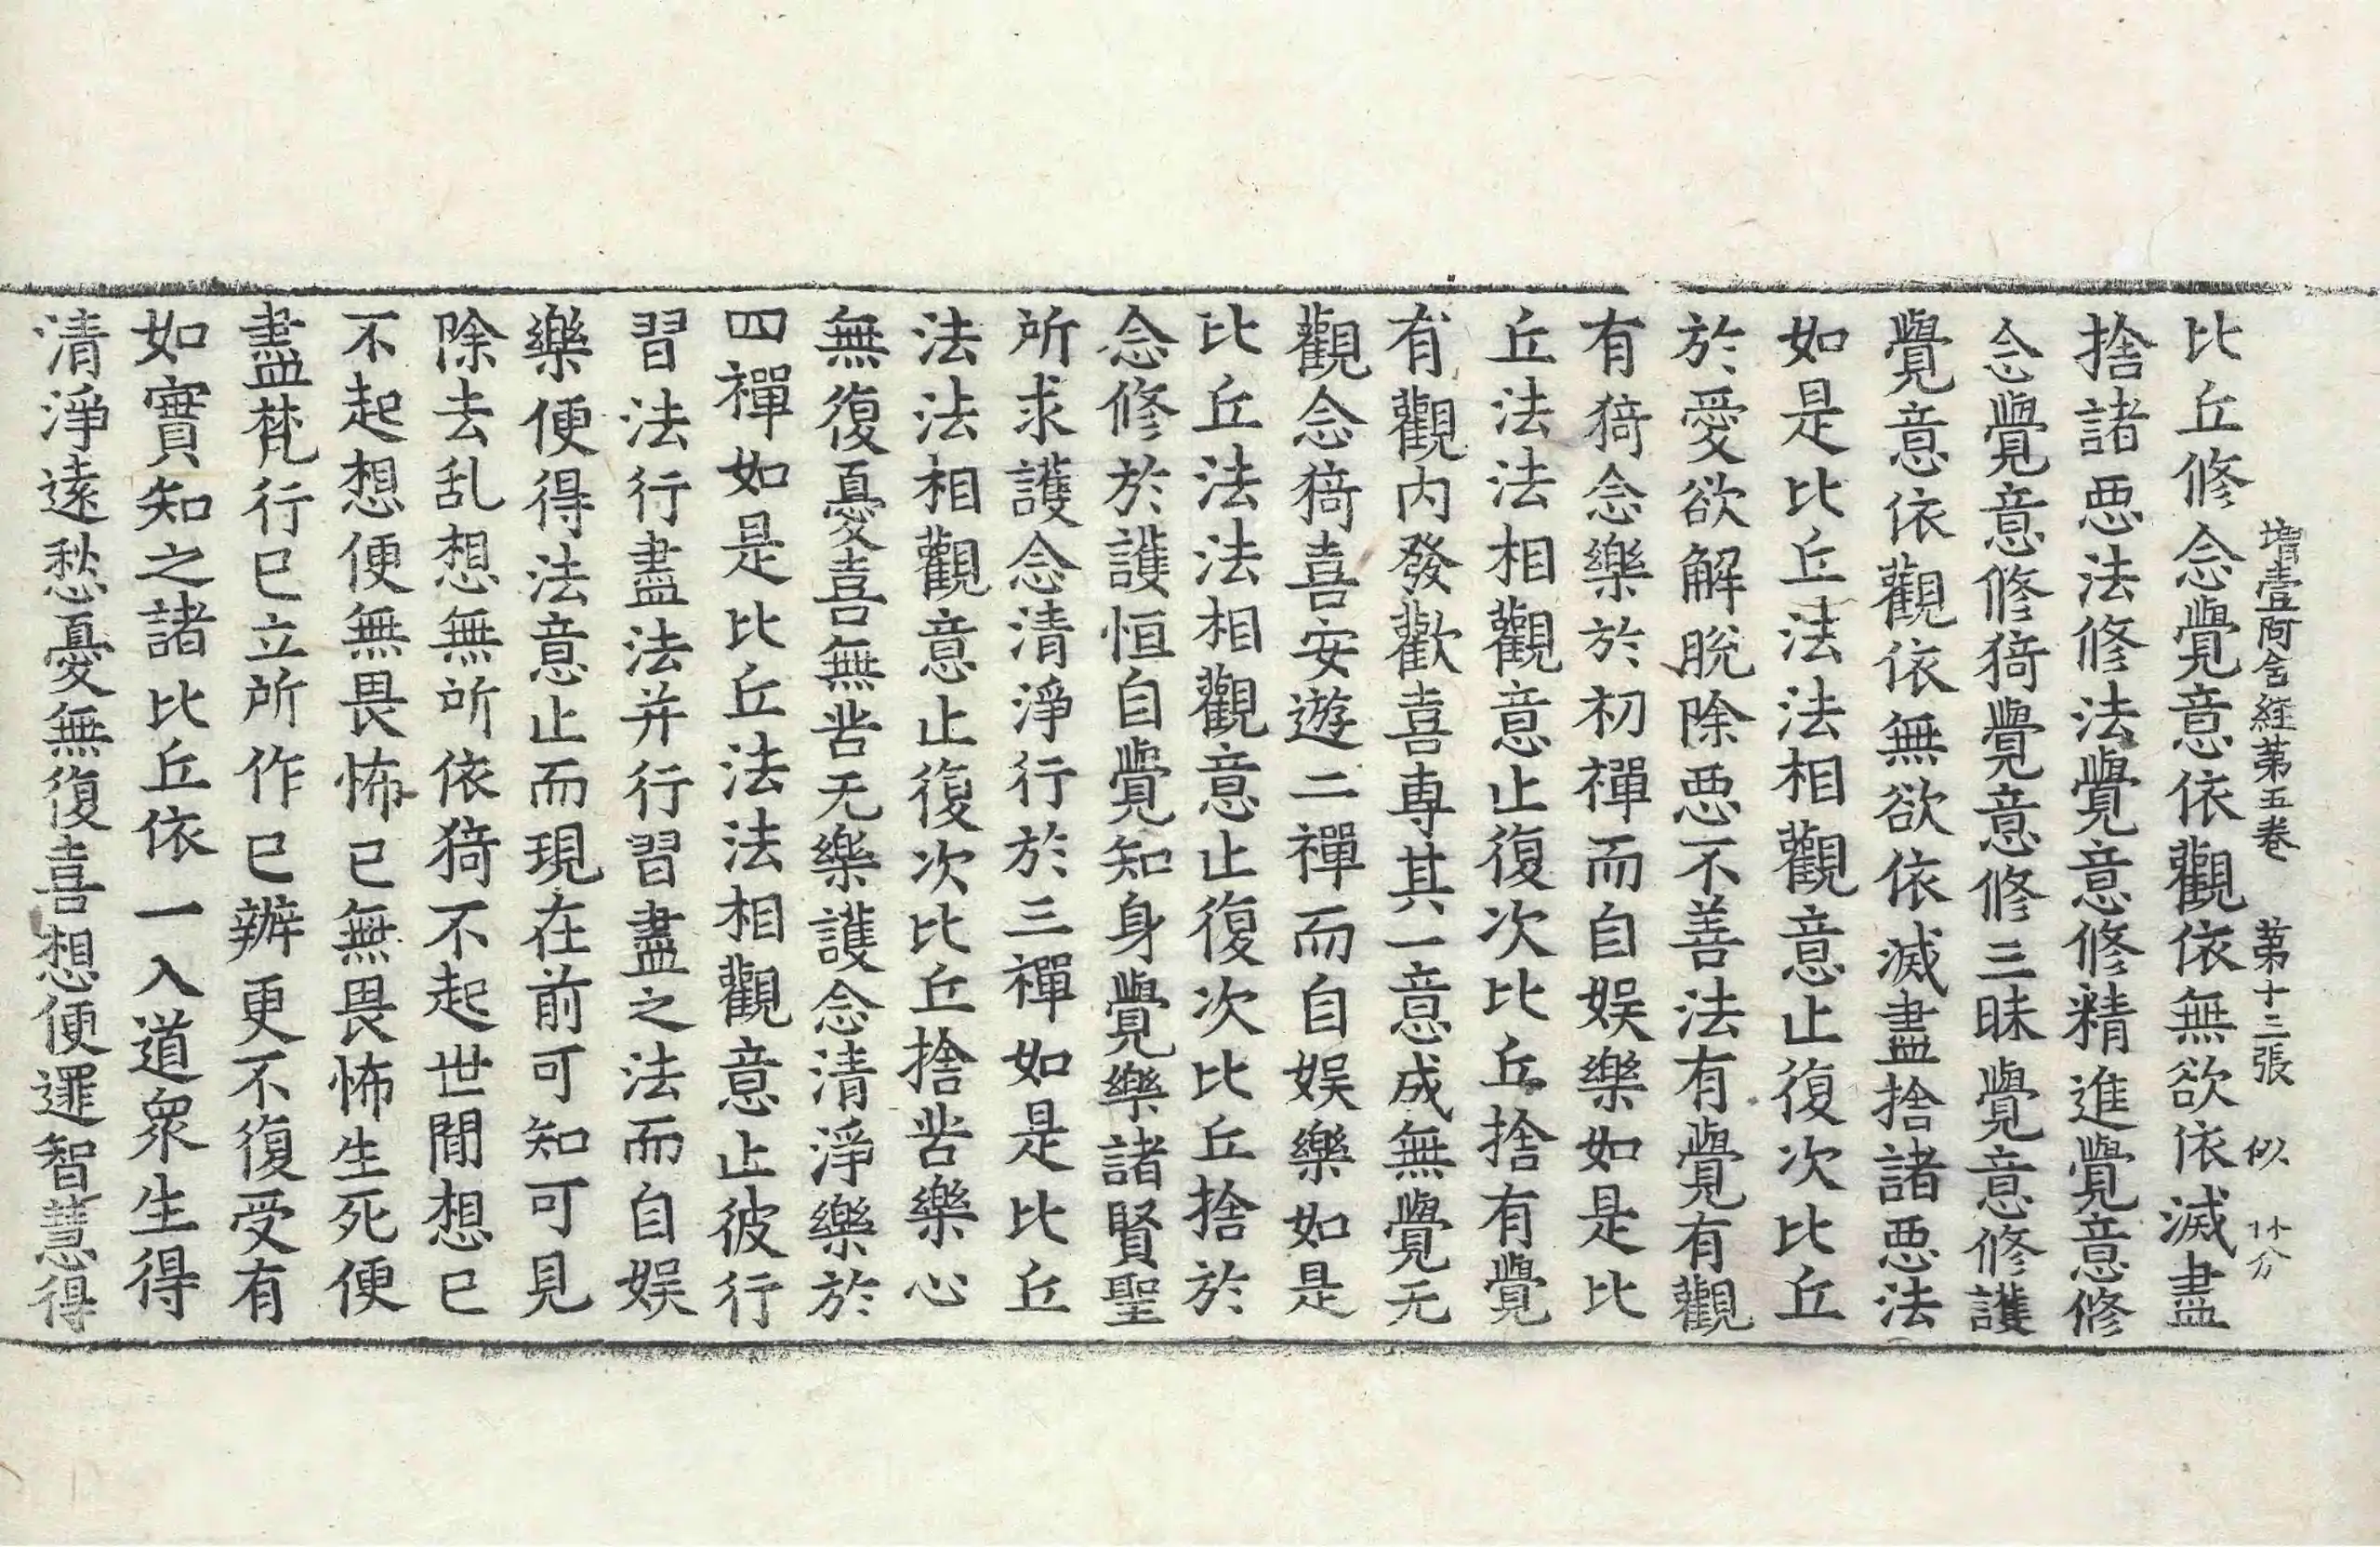 增壹阿含経苐五卷 苐十三張 似
比丘修念覺意依觀依無欲依滅盡
捨諸惡法修法覺意修精進覺意修
念覺意修猗覺意修三昧覺意修護
覺意依觀依無欲依滅盡捨諸惡法
如是比丘法法相觀意止復次比丘
於愛欲解脫除惡不善法有覺有觀
有猗念樂於初禪而自娛樂如是比
丘法法相觀意止復次比丘捨有覺
有觀內發歡喜專其一意成無覺无
觀念猗喜安遊二禪而自娛樂如是
比丘法法相觀意止復次比丘捨於
念修於護恒自覺知身覺樂諸賢聖
所求護念清淨行於三禪如是比丘
法法相觀意止復次比丘捨苦樂心
無復憂喜無苦无樂護念清淨樂於
四禪如是比丘法法相觀意止彼行
習法行盡法并行習盡之法而自娛
樂便得法意止而現在前可知可見
除去乱想無所依猗不起世閒想已
不起想便無畏怖已無畏怖生死便
盡梵行已立所作已辦更不復受有
如實知之諸比丘依一入道眾生得
清淨遠愁憂無復喜想便逮智慧得